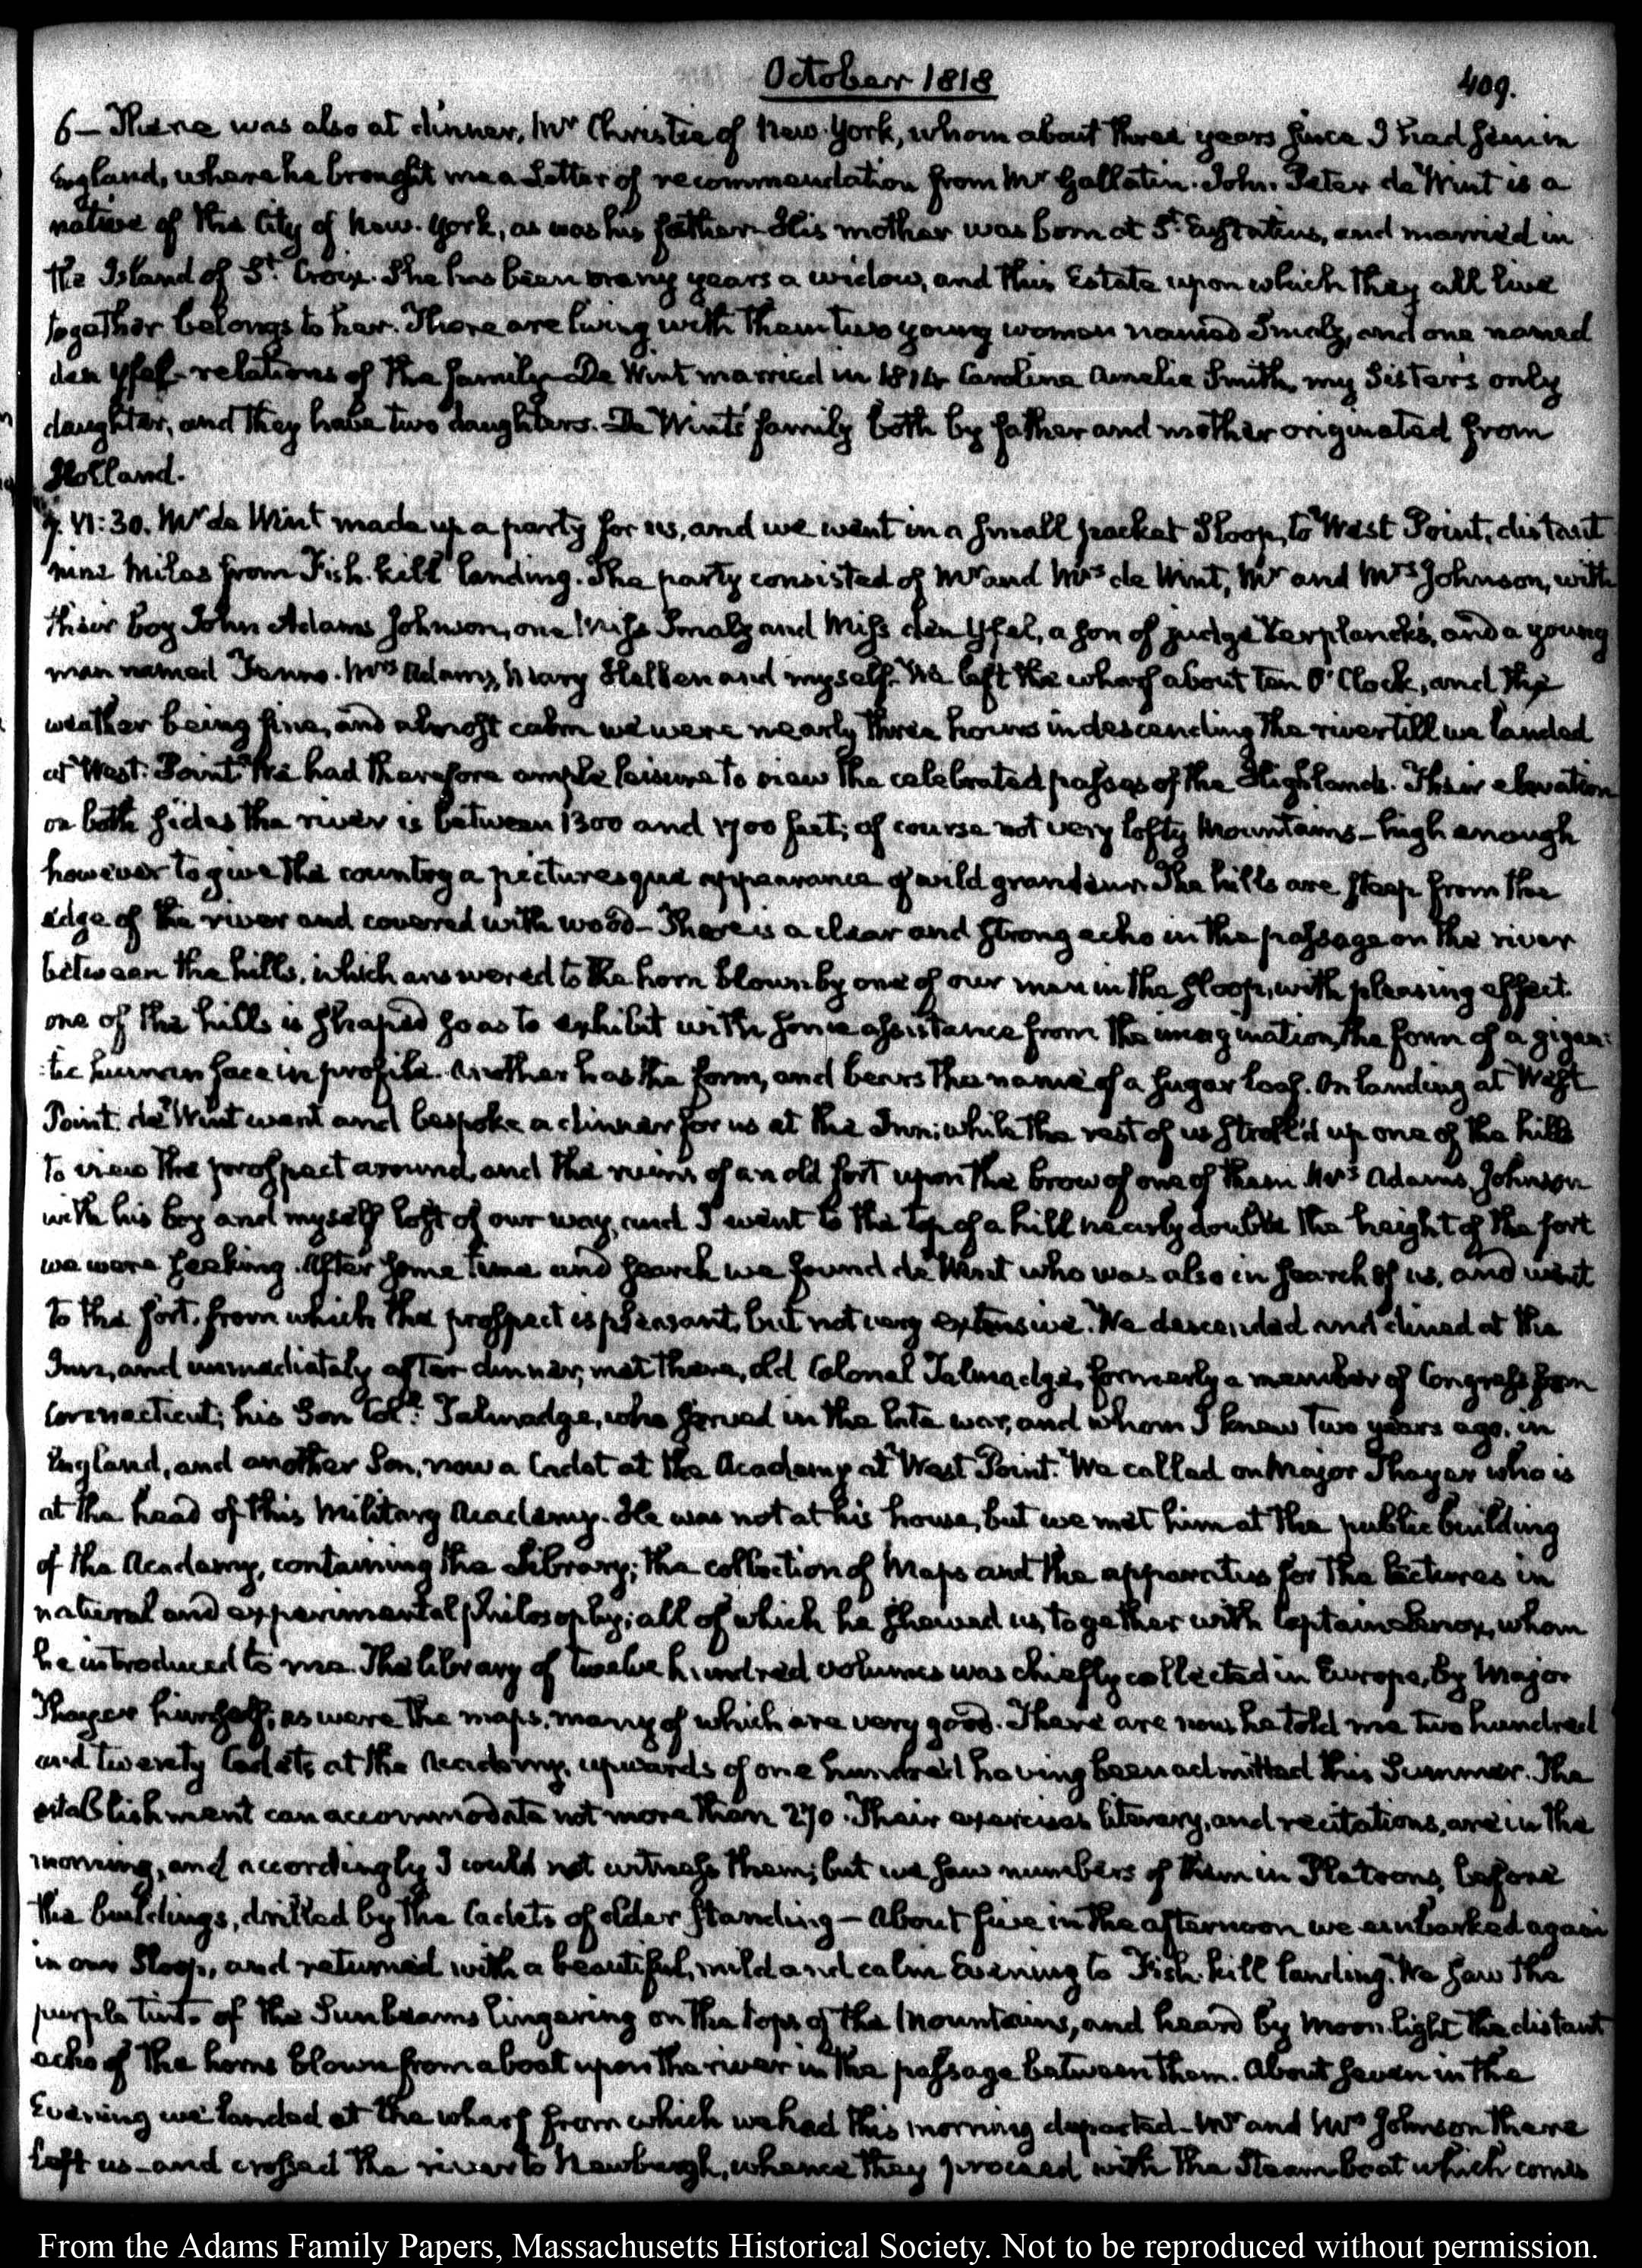 October 1818
409.
6— There was also at dinner, Mr Christie of New-York, whom about three years since I had seen in
England, where he brought me a Letter of recommendation from Mr Gallatin. John Peter de Wint is a
native of the City of New-York, as was his father— His mother was born at St. Eustatius, and married in
the Island of St. Croix. She has been many years a widow, and this Estate upon which they all live
together belongs to her. There are living with them two young women named Smalz, and one named
den Ysel— relations of the family— De Wint married in 1814 Caroline Amelia Smith, my Sister's only
daughter, and they have two daughters. De Wint's family both by father and mother originated from
Holland.
7. VI:30. Mr de Wint made up a party for us, and we went in a small packet Sloop, to West Point, distant
nine Miles from Fish-kill landing. The party consisted of Mr and Mrs de Wint, Mr and Mrs Johnson, with
their boy John Adams Johnson, one Miss Smalz and Miss den Ysel, a son of judge Verplanck's, and a young
man named Fenno. Mrs Adams, Mary Hellen and myself. We left the wharf about ten O'Clock, and the
weather being fine, and almost calm we were nearly three hours in descending the river till we landed
at West-Point. We had therefore ample leisure to view the celebrated passes of the Highlands. Their elevation
on both sides the river is between 1300 and 1700 feet; of course not very lofty Mountains— high enough
however to give the country a picturesque appearance of wild grandeur. The hills are steep from the
edge of the river and covered with wood— There is a clear and strong echo in the passage on the river
between the hills, which answered to the horn blown by one of our men in the sloop, with pleasing effect.
one of the hills is shaped so as to exhibit with some assistance from the imagination, the form of a gigan:
:tic human face in profile. Another has the form, and bears the name of a sugar loaf. On landing at West
Point. de Wint went and bespoke a dinner for us at the Inn; while the rest of us stroll'd up one of the hills
to view the prospect around, and the ruins of an old fort upon the brow of one of them. Mrs Adams, Johnson
with his boy and myself lost of our way, and I went to the top of a hill nearly double the height of the fort
we were seeking. After some time and search we found de Wint who was also in search of us, and went
to the fort, from which the prospect is pleasant, but not very extensive. We descended and dined at the
Inn, and immediately after dinner, met there, old Colonel Talmadge, formerly a member of Congress from
Connecticut; his Son Coll: Talmadge, who served in the late war, and whom I knew two years ago, in
England, and another Son, now a Cadet at the Academy at West Point. We called on Major Thayer who is
at the head of this Military Academy. He was not at his house, but we met him at the public building
of the Academy, containing the Library; the collection of Maps and the apparatus for the lectures in
natural and experimental philosophy; all of which he shewed us, together with Captain Lenox, whom
he introduced to me. The library of twelve hundred volumes was chiefly collected in Europe, by Major
Thayer himself; as were the maps, many of which are very good. There are now he told me two hundred
and twenty Cadets at the Academy, upwards of one hundred having been admitted this Summer. The
establishment can accommodate not more than 270. Their exercises literary, and recitations, are in the
morning, and accordingly I could not witness them; but we saw numbers of them in Platoons, before
the buildings, drilled by the Cadets of older standing— About five in the afternoon we embarked again
in our Sloop, and returned with a beautiful, mild and calm Evening to Fish-kill landing. We saw the
purple tint of the Sunbeams lingering on the tops of the Mountains, and heard by Moon-light the distant
echo of the horns blown from a boat upon the river in the passage between them. About seven in the
Evening we landed at the wharf from which we had this morning departed— Mr and Mrs Johnson there
left us— and crossed the river to Newburgh, whence they proceed with the Steam boat which comes
From the Adams Family Papers, Massachusetts Historical Society. Not to be reproduced without permission.